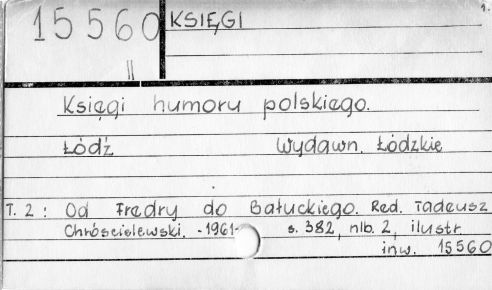 1.
15 560 KSIĘGI
II
Księgi humoru polskiego.
Łódź Wydawn. Łódzkie
T. 2: Od Fredry do Bałuckiego. Red. Tadeusz
Chróścielewski. -1961- s. 382, nlb. 2, ilustr.
inw. 15560